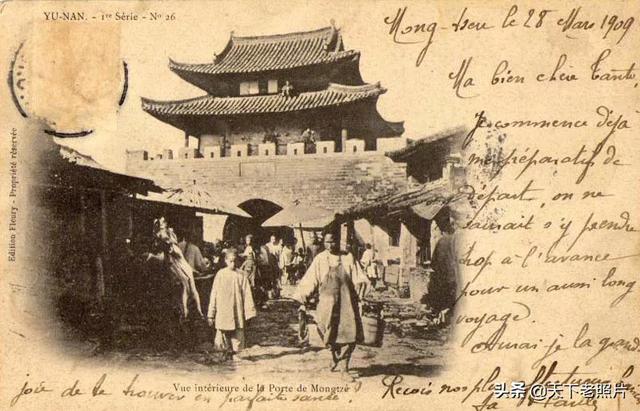 YU-NAN. - 1re Série - No 26
Edition Fleury - Propriété réservée
Mong-tseu le 28 Mars 1909
Ma bien chère Tante,
Je commence déjà
mes préparatifs de
départ, on ne
saurait s'y prendre
trop à l'avance
pour un aussi long
voyage.
aurai-je la grande
joie de te trouver en parfaite santé
Vue intérieure de la Porte de Mongtzé
头条 @天下老照片